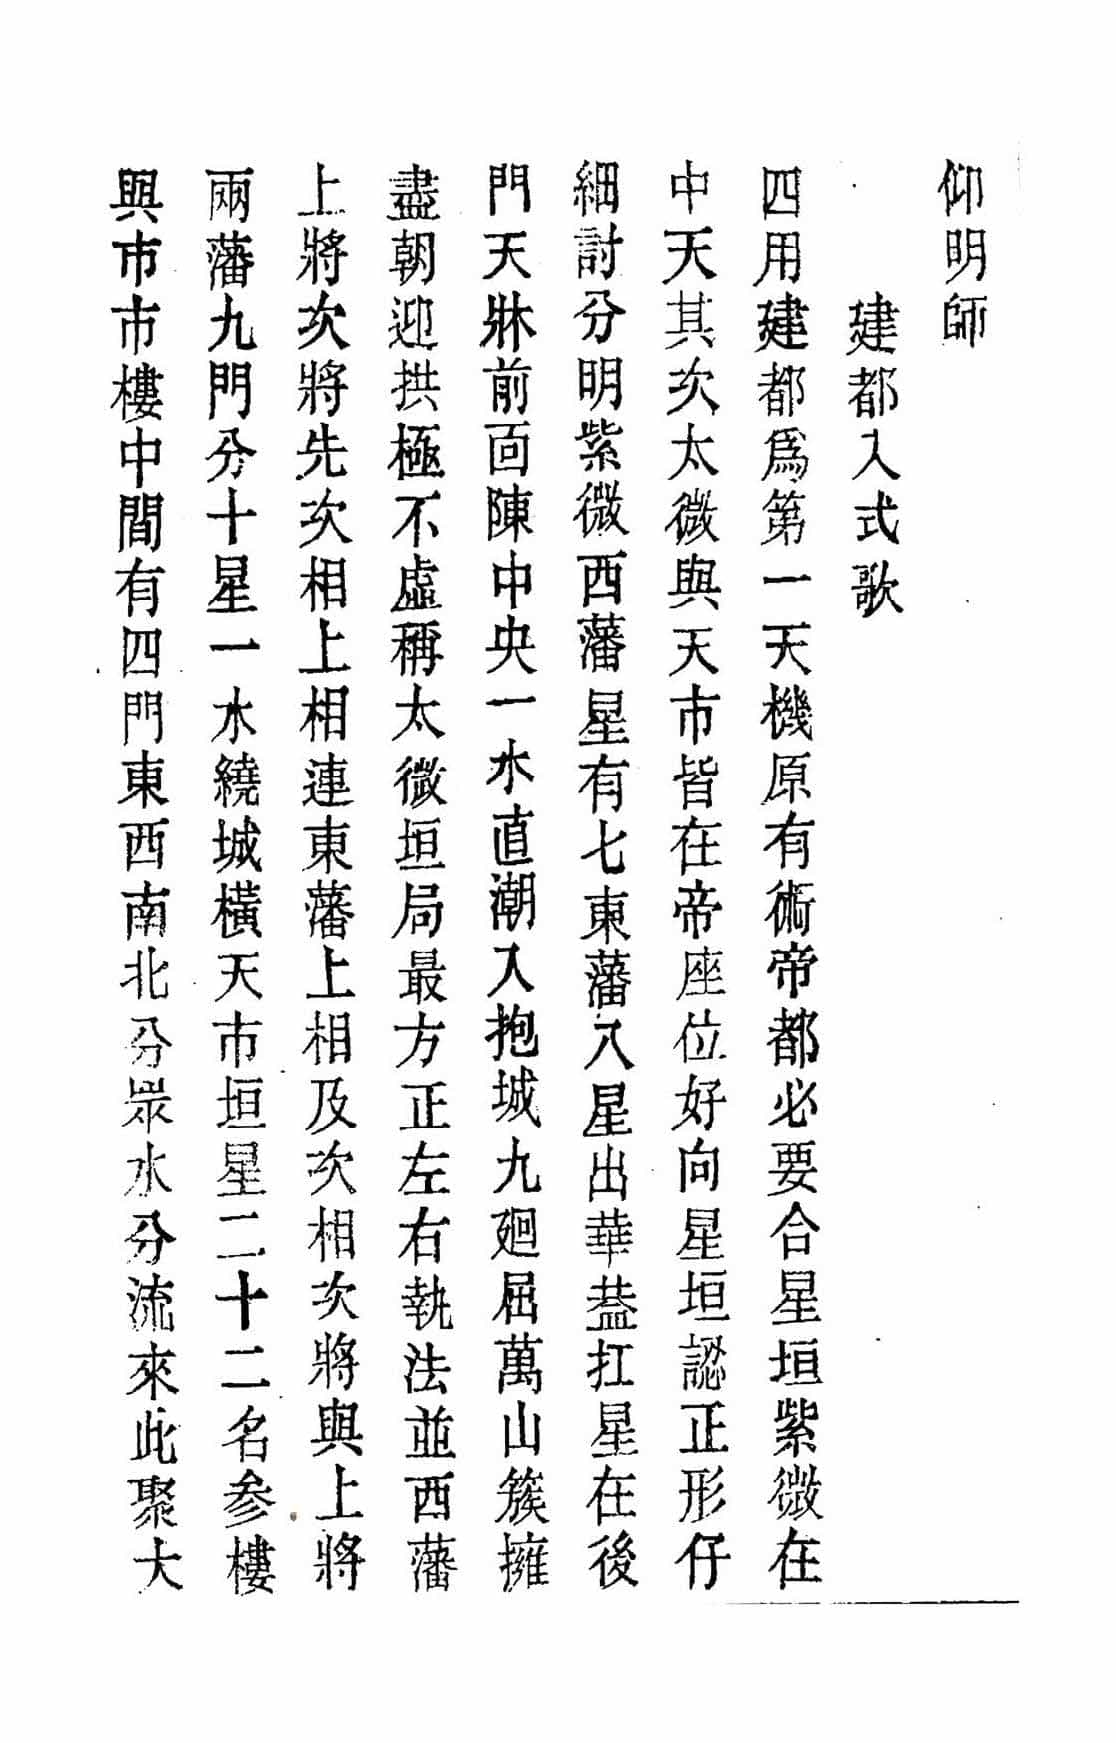 仰明師
建都入式歌
四用建都爲第一天機原有術帝都必要合星垣紫微在
中天其次太微與天市皆在帝座位好向星垣認正形仔
細討分明紫微西藩星有七東藩八星出華葢扛星在後
門天牀前面陳中央一水直潮入抱城九廻屈萬山簇擁
盡朝迎拱極不虛稱太微垣局最方正左右執法並西藩
上將次將先次相上相連東藩上相及次相次將與上將
兩藩九門分十星一水繞城橫天市垣星二十二名参樓
與市市樓中間有四門東西南北分眾水分流來此聚大